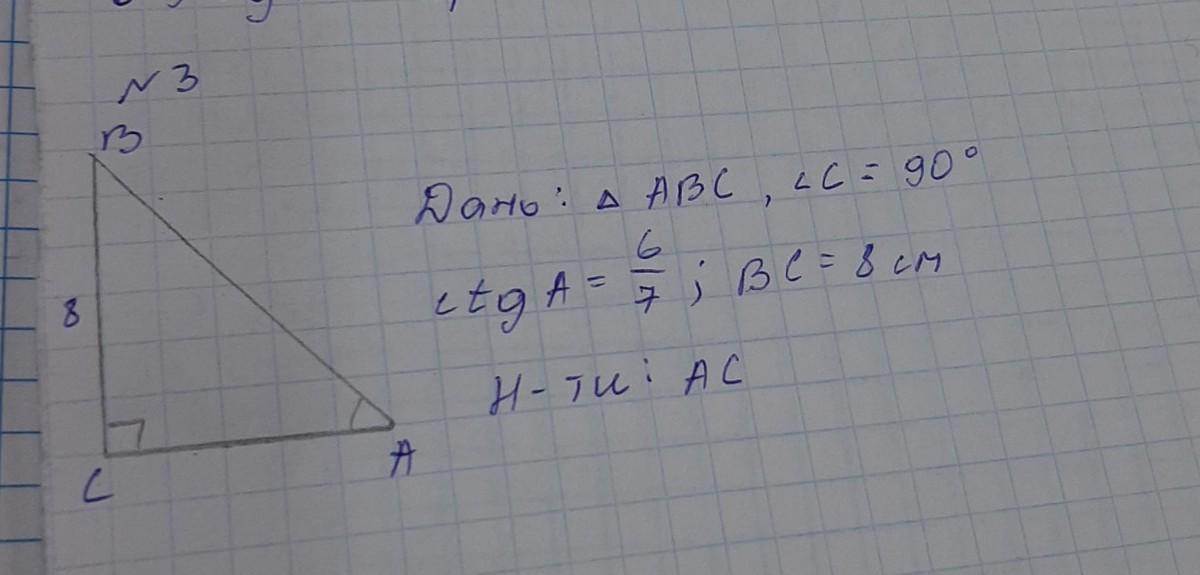 № 3
B
Дано: △ ABC, ∠C = 90°
ctg A = 6/7 ; BC = 8 см
8
Н-ти: AC
C
A